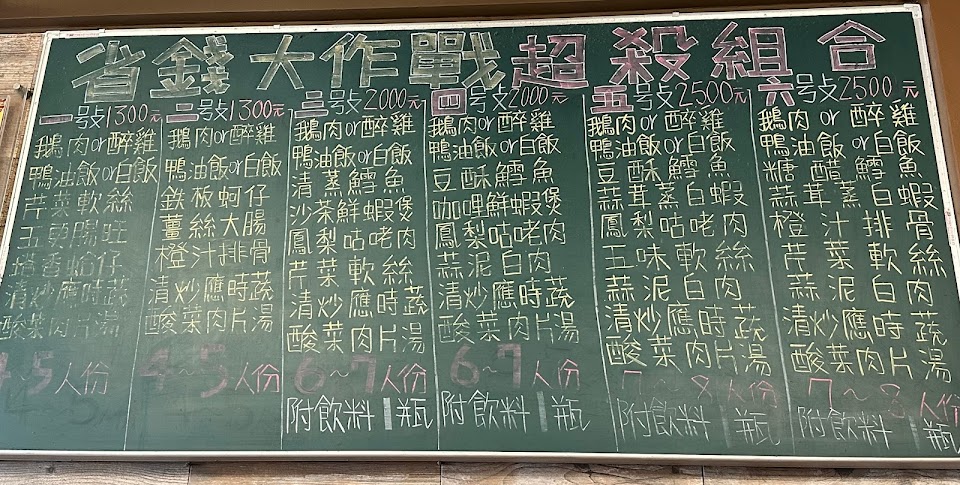 省錢大作戰超殺組合
一号1300元
鵝肉or醉雞
鴨油飯or白飯
芹菜軟絲
五更腸旺
塔香蛤仔
清炒應時蔬
酸菜肉片湯
4~5人份
二号1300元
鵝肉or醉雞
鴨油飯or白飯
鉄板蚵仔
薑絲大腸
橙汁排骨
清炒應時蔬
酸菜肉片湯
4~5人份
三号2000元
鵝肉or醉雞
鴨油飯or白飯
清蒸鱈魚
沙茶鮮蝦煲
鳳梨咕咾肉
芹菜軟絲
清炒應時蔬
酸菜肉片湯
6~7人份
附飲料1瓶
四号2000元
鵝肉or醉雞
鴨油飯or白飯
豆酥鱈魚
咖哩鮮蝦煲
鳳梨咕咾肉
蒜泥白肉
清炒應時蔬
酸菜肉片湯
6~7人份
附飲料1瓶
五号2500元
鵝肉or醉雞
鴨油飯or白飯
豆酥鱈魚
蒜茸蒸白蝦
鳳梨咕咾肉
五味軟絲
蒜泥白肉
清炒應時蔬
酸菜肉片湯
7~8人份
附飲料1瓶
六号2500元
鵝肉or醉雞
鴨油飯or白飯
糖醋鱈魚
蒜茸蒸白蝦
橙汁排骨
芹菜軟絲
蒜泥白肉
清炒應時蔬
酸菜肉片湯
7~8人份
附飲料1瓶